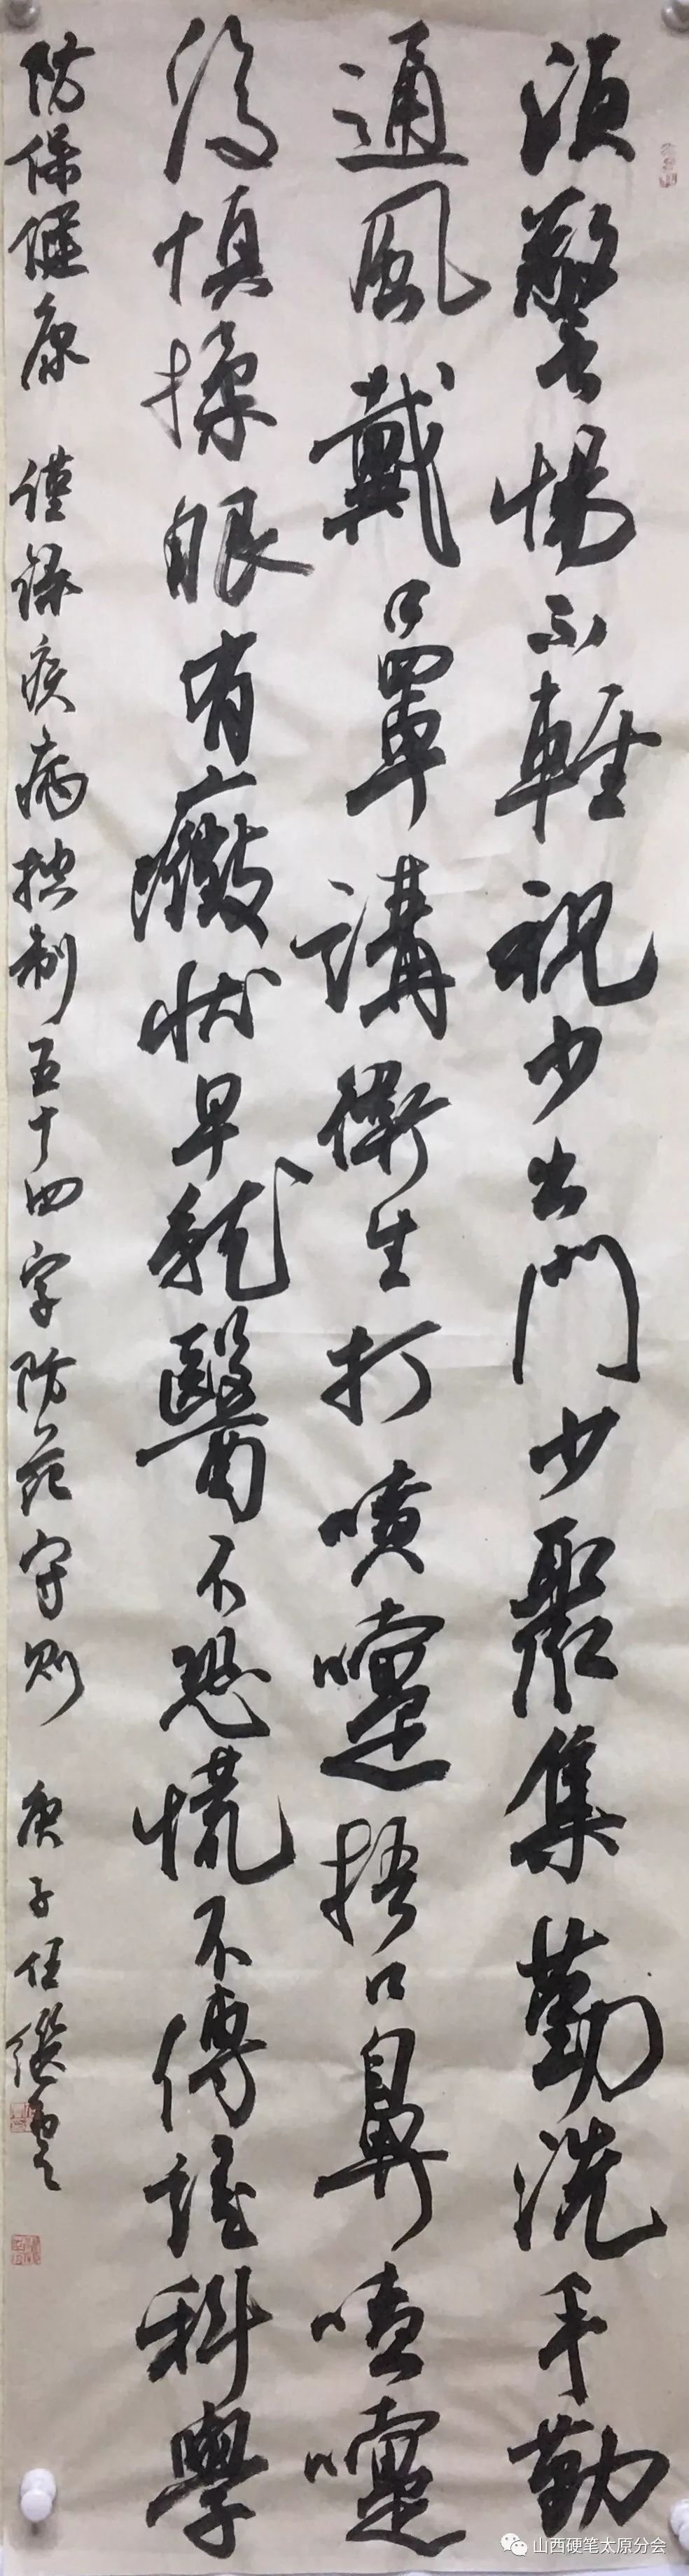 須警惕不輕視少出門少聚集勤洗手勤
通風戴口罩講衛生打噴嚏捂口鼻噴嚏
後慎揉眼有癥狀早就醫不恐慌不傳謠科學
防保健康 謹録疾病控制五十四字防范守則 庚子任繼
山西硬笔太原分会